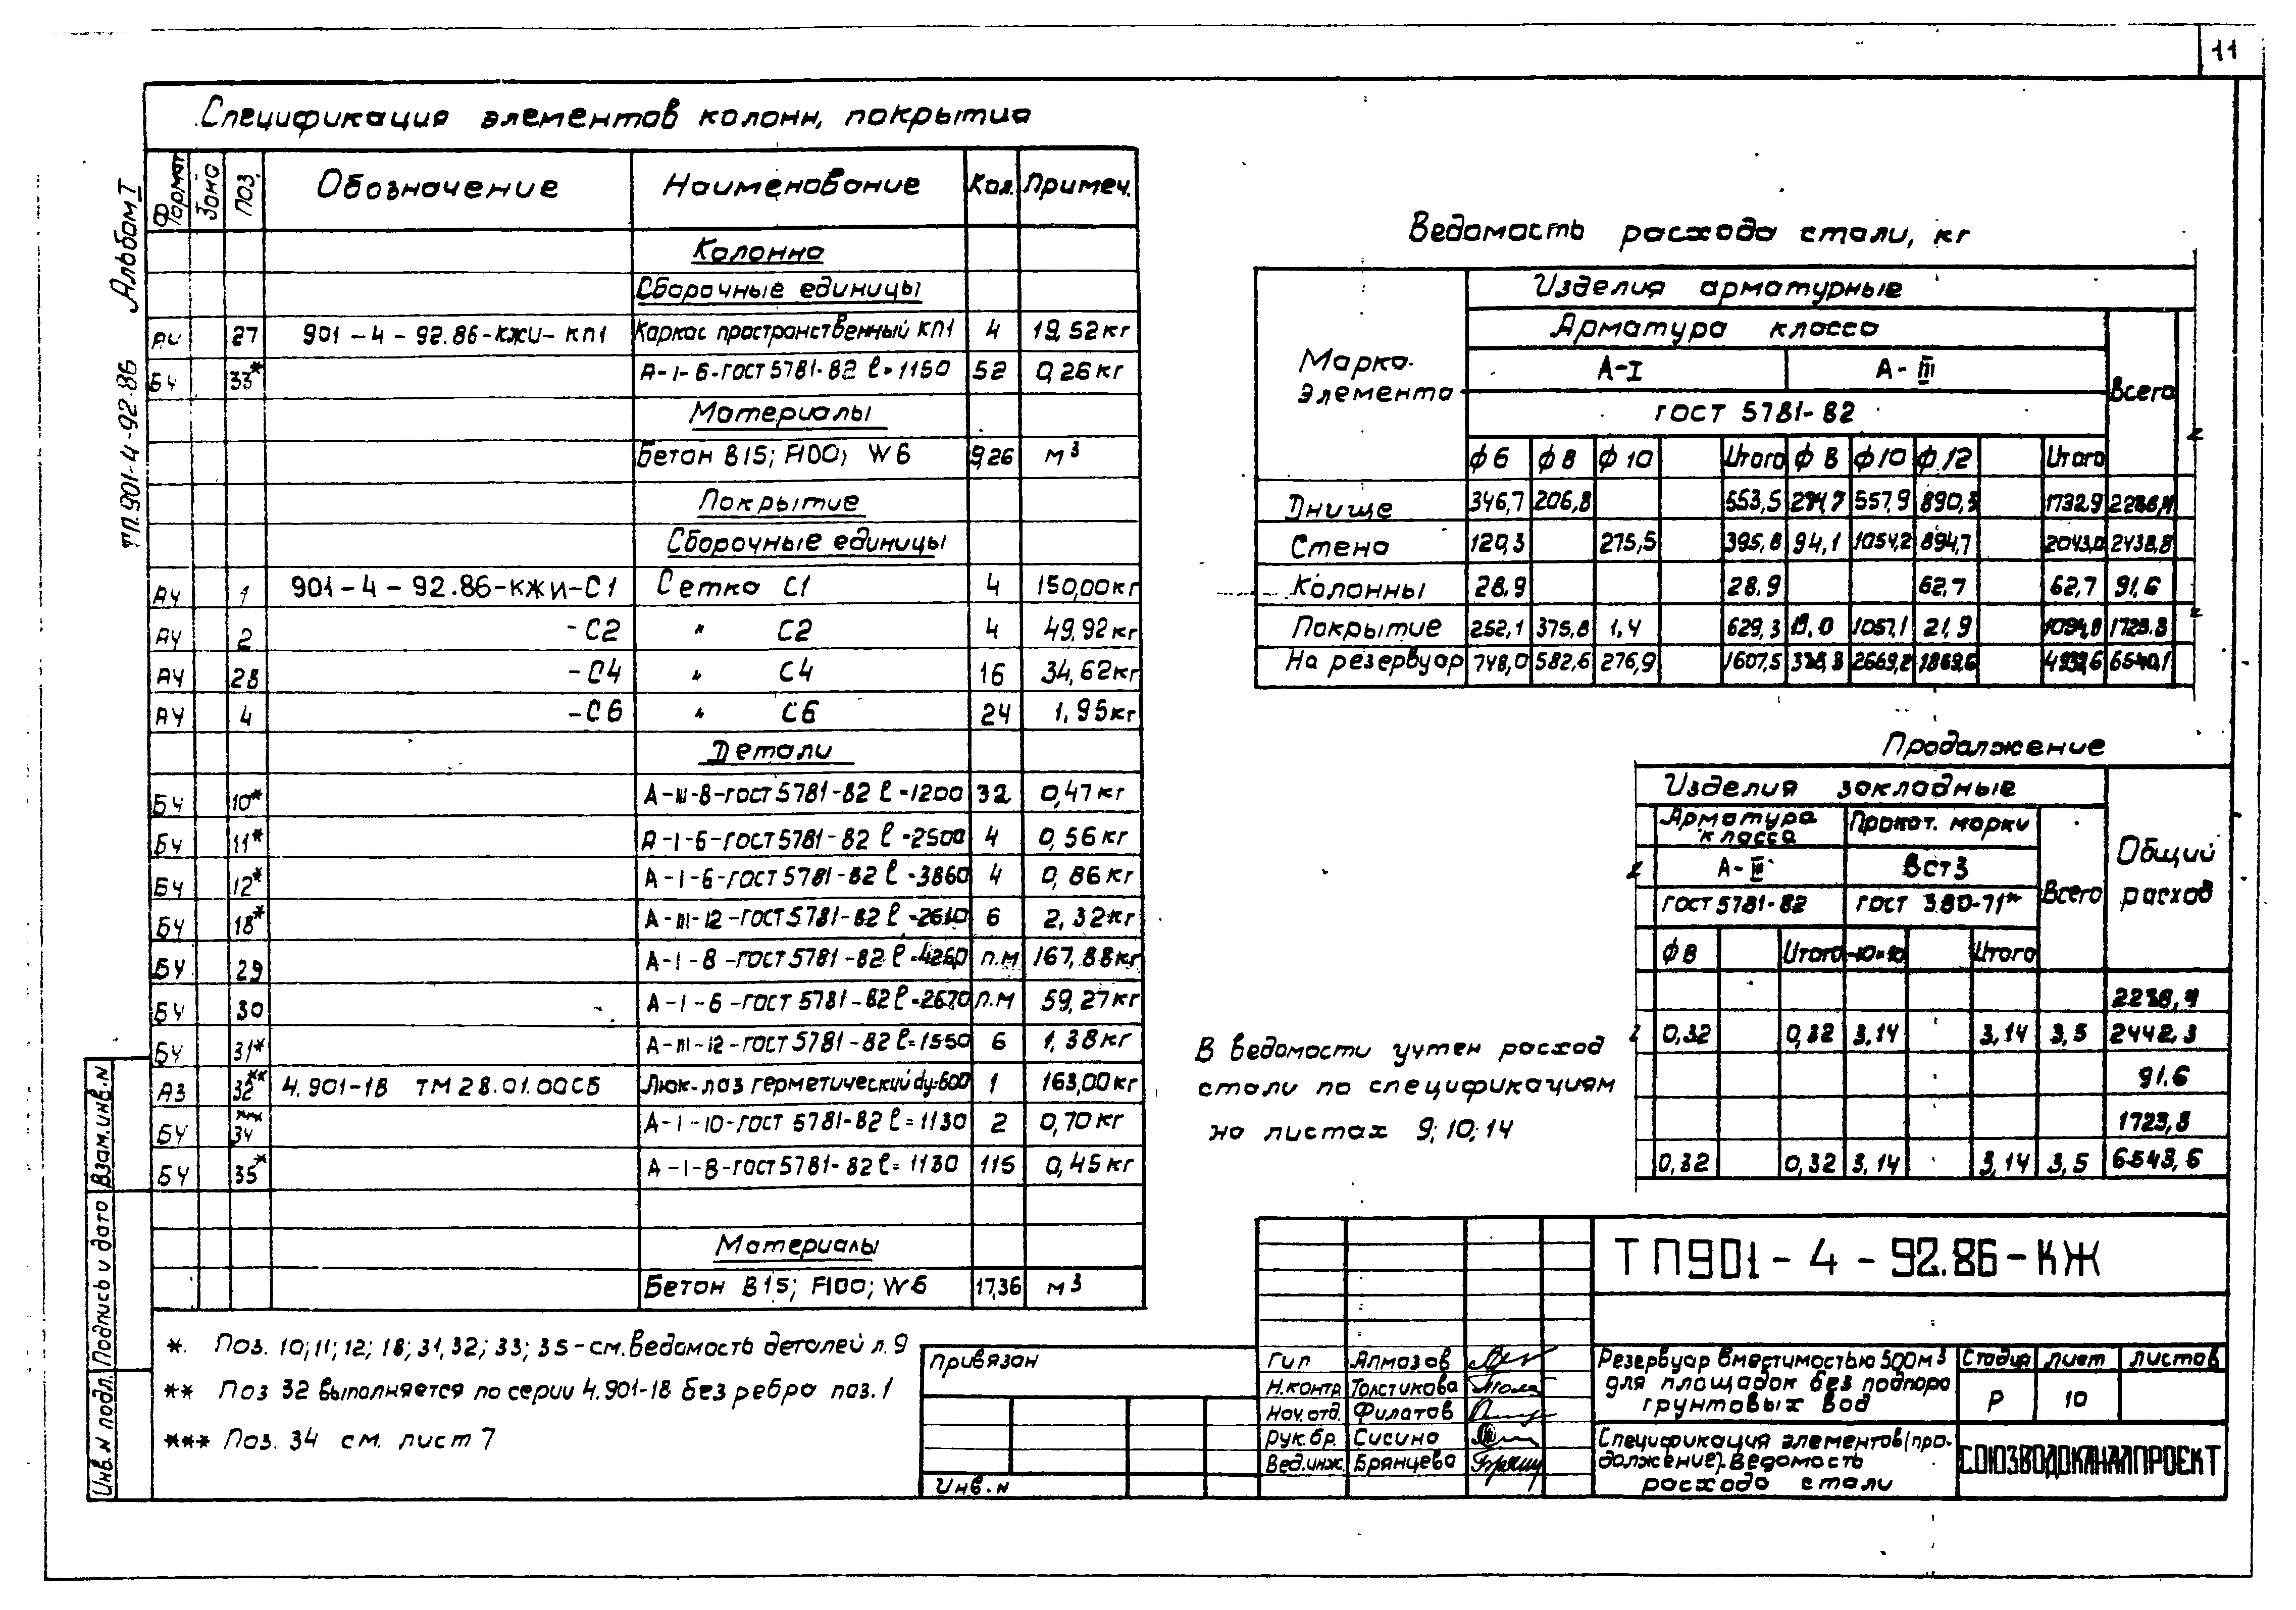 11
Спецификация элементов колонн, покрытия
Формат Зона Поз. Обозначение Наименование Кол. Примеч.
Колонна
Сборочные единицы
АЧ 27 901-4-92.86-КЖИ-КП1 Каркас пространственный КП1 4 19,52кг
БЧ 33* А-I-6-ГОСТ 5781-82 ℓ=1150 52 0,26кг
Материалы
Бетон В15; F100; W6 9,26 м³
Покрытие
Сборочные единицы
АЧ 1 901-4-92.86-КЖИ-С1 Сетка С1 4 150,00кг
АЧ 2 -С2 " С2 4 49,92кг
АЧ 28 -С4 " С4 16 34,62кг
АЧ 4 -С6 " С6 24 1,95кг
Детали
БЧ 10* А-III-8-ГОСТ 5781-82 ℓ=1200 32 0,47кг
БЧ 11* А-I-6-ГОСТ 5781-82 ℓ=2500 4 0,56кг
БЧ 12* А-I-6-ГОСТ 5781-82 ℓ=3860 4 0,86кг
БЧ 18* А-III-12-ГОСТ 5781-82 ℓ=2610 6 2,32кг
БЧ 29 А-I-8-ГОСТ 5781-82 ℓ=4260 п.м 167,88кг
БЧ 30 А-I-6-ГОСТ 5781-82 ℓ=2670 п.м 59,27кг
БЧ 31* А-III-12-ГОСТ 5781-82 ℓ=1550 6 1,38кг
А3 32** 4.901-18 ТМ 28.01.00СБ Люк-лаз герметический dу=600 1 163,00кг
БЧ 34*** А-I-10-ГОСТ 5781-82 ℓ=1130 2 0,70кг
БЧ 35* А-I-8-ГОСТ 5781-82 ℓ=1130 115 0,45кг
Материалы
Бетон В15; F100; W6 17,36 м³
* Поз. 10; 11; 12; 18; 31, 32; 33; 35 - см. ведомость деталей л. 9
** Поз 32 выполняется по серии 4.901-18 без ребра поз. 1
*** Поз. 34 см. лист 7
Альбом I
ТП.901-4-92.86
Взам.инв.N
Подпись и дата
Инв.N подл.
Ведомость расхода стали, кг
Марка элемента
Изделия арматурные
Арматура класса
Всего
А-I А-III
ГОСТ 5781-82
ф6 ф8 ф10 Итого ф8 ф10 ф12 Итого
Днище 346,7 206,8 553,5 557,9 1732,9
Стена 120,3 275,5 395,8 94,1 1054,2 894,7 2043,0 2438,8
Колонны 28.9 28.9 62,7 62,7 91,6
Покрытие 252,1 375,8 1,4 629,3 1057,1 21,9 1723.8
На резервуар 748,0 582,6 276,9 1607,5 2669,2 1869,6 6540,1
Продолжение
Изделия закладные
Общий расход
Арматура класса Прокат. марки
Всего
А-III ВСт3
ГОСТ 5781-82 ГОСТ 380-71*
ф8 Итого -10×10 Итого
0,32 0,32 3,14 3,14 3,5 2442,3
91.6
1723,8
0,32 0,32 3,14 3,14 3,5 6543,6
В ведомости учтен расход
стали по спецификациям
на листах 9; 10; 14
Привязан
Инв.N
ТП901-4-92.86-КЖ
Гип Алмазов
Н.контр Толстикова
Нач.отд. Филатов
Рук.бр. Сисина
Вед.инж. Брянцева
Резервуар вместимостью 500м³
для площадок без подпора
грунтовых вод
Стадия Лист Листов
Р 10
Спецификация элементов (про-
должение). Ведомость
расхода стали
СОЮЗВОДОКАНАЛПРОЕКТ